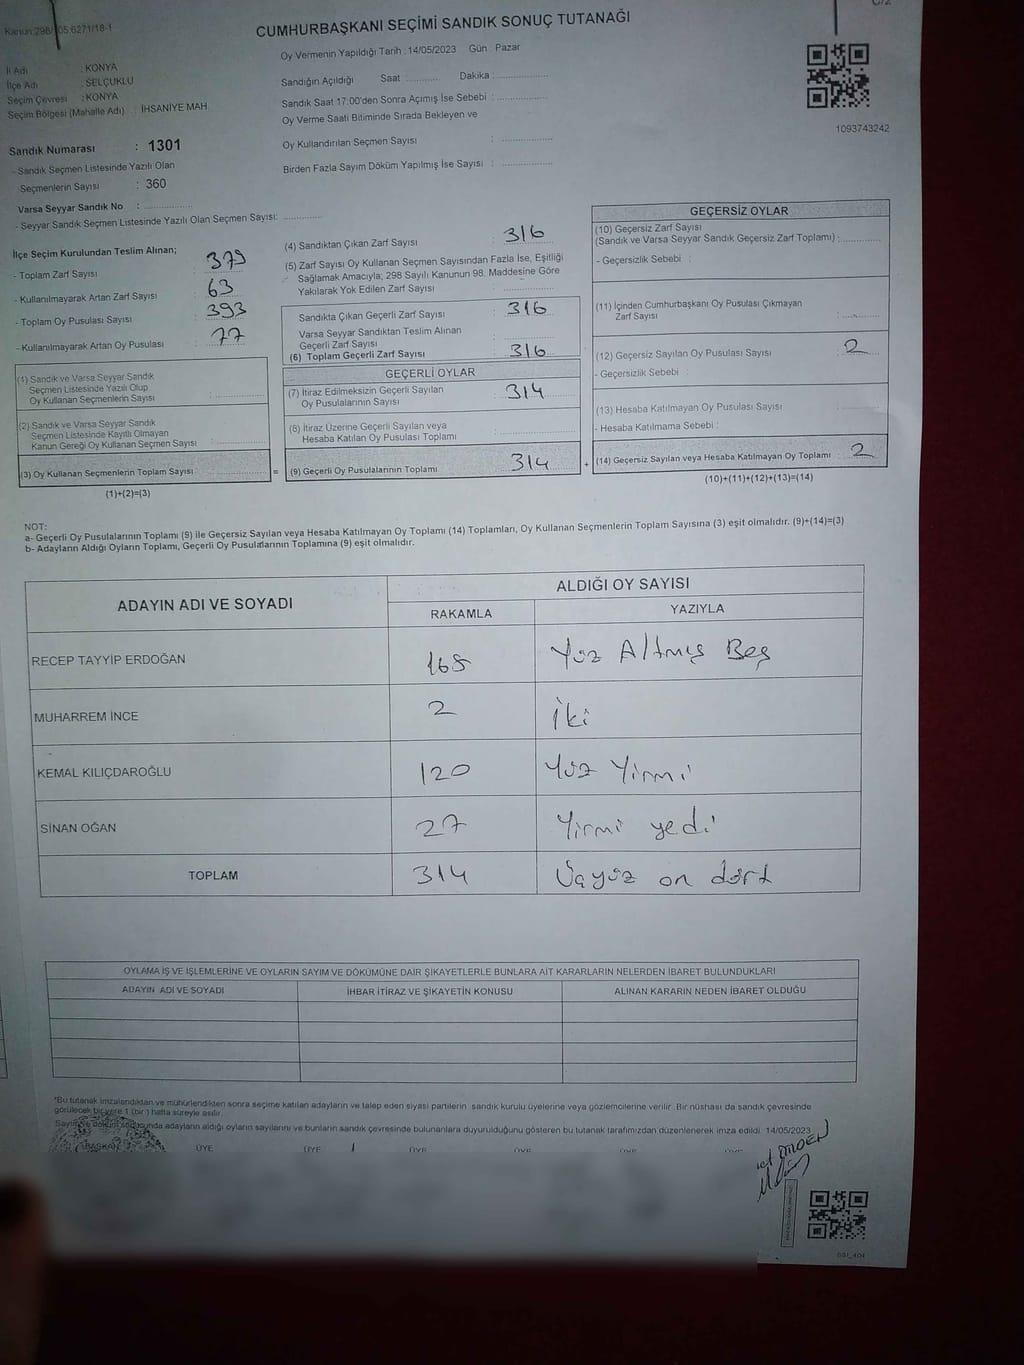 Kanun:298/ 05.6271/18-1
C/2
CUMHURBAŞKANI SEÇİMİ SANDIK SONUÇ TUTANAĞI
Oy Vermenin Yapıldığı Tarih : 14/05/2023 Gün Pazar
İl Adı : KONYA
İlçe Adı : SELÇUKLU
Seçim Çevresi : KONYA
Seçim Bölgesi (Mahalle Adı) : İHSANİYE MAH
Sandık Numarası : 1301
- Sandık Seçmen Listesinde Yazılı Olan
Seçmenlerin Sayısı : 360
Varsa Seyyar Sandık No : ..................
- Seyyar Sandık Seçmen Listesinde Yazılı Olan Seçmen Sayısı: ..............
Sandığın Açıldığı Saat : ........... Dakika : ..................
Sandık Saat 17:00'den Sonra Açımış İse Sebebi : ..................
Oy Verme Saati Bitiminde Sırada Bekleyen ve
Oy Kullandırılan Seçmen Sayısı : ..................
Birden Fazla Sayım Döküm Yapılmış İse Sayısı : ..................
1093743242
İlçe Seçim Kurulundan Teslim Alınan;
- Toplam Zarf Sayısı : 379
- Kullanılmayarak Artan Zarf Sayısı : 63
- Toplam Oy Pusulası Sayısı : 393
- Kullanılmayarak Artan Oy Pusulası : 77
(1) Sandık ve Varsa Seyyar Sandık
Seçmen Listesinde Yazılı Olup
Oy Kullanan Seçmenlerin Sayısı : ..................
(2) Sandık ve Varsa Seyyar Sandık
Seçmen Listesinde Kayıtlı Olmayan
Kanun Gereği Oy Kullanan Seçmen Sayısı : ..................
(3) Oy Kullanan Seçmenlerin Toplam Sayısı : ..................
(1)+(2)=(3)
=
(4) Sandıktan Çıkan Zarf Sayısı : 316
(5) Zarf Sayısı Oy Kullanan Seçmen Sayısından Fazla İse, Eşitliği
Sağlamak Amacıyla; 298 Sayılı Kanunun 98. Maddesine Göre
Yakılarak Yok Edilen Zarf Sayısı : ..................
Sandıkta Çıkan Geçerli Zarf Sayısı : 316
Varsa Seyyar Sandıktan Teslim Alınan
Geçerli Zarf Sayısı : ..................
(6) Toplam Geçerli Zarf Sayısı : 316
GEÇERLİ OYLAR
(7) İtiraz Edilmeksizin Geçerli Sayılan
Oy Pusulalarının Sayısı : 314
(8) İtiraz Üzerine Geçerli Sayılan veya
Hesaba Katılan Oy Pusulası Toplamı : ..................
(9) Geçerli Oy Pusulalarının Toplamı : 314
+
GEÇERSİZ OYLAR
(10) Geçersiz Zarf Sayısı
(Sandık ve Varsa Seyyar Sandık Geçersiz Zarf Toplamı) : ...........
- Geçersizlik Sebebi :
(11) İçinden Cumhurbaşkanı Oy Pusulası Çıkmayan
Zarf Sayısı : ...........
(12) Geçersiz Sayılan Oy Pusulası Sayısı : 2
- Geçersizlik Sebebi :
(13) Hesaba Katılmayan Oy Pusulası Sayısı : ...........
- Hesaba Katılmama Sebebi :
(14) Geçersiz Sayılan veya Hesaba Katılmayan Oy Toplamı : 2
(10)+(11)+(12)+(13)=(14)
NOT:
a- Geçerli Oy Pusulalarının Toplamı (9) ile Geçersiz Sayılan veya Hesaba Katılmayan Oy Toplamı (14) Toplamları, Oy Kullanan Seçmenlerin Toplam Sayısına (3) eşit olmalıdır. (9)+(14)=(3)
b- Adayların Aldığı Oyların Toplamı, Geçerli Oy Pusulalarının Toplamına (9) eşit olmalıdır.
ADAYIN ADI VE SOYADI
ALDIĞI OY SAYISI
RAKAMLA YAZIYLA
RECEP TAYYİP ERDOĞAN 165 Yüz Altmış Beş
MUHARREM İNCE 2 İki
KEMAL KILIÇDAROĞLU 120 Yüz Yirmi
SİNAN OĞAN 27 Yirmi yedi
TOPLAM 314 Üçyüz on dört
OYLAMA İŞ VE İŞLEMLERİNE VE OYLARIN SAYIM VE DÖKÜMÜNE DAİR ŞİKAYETLERLE BUNLARA AİT KARARLARIN NELERDEN İBARET BULUNDUKLARI
ADAYIN ADI VE SOYADI İHBAR İTİRAZ VE ŞİKAYETİN KONUSU ALINAN KARARIN NEDEN İBARET OLDUĞU
"Bu tutanak imzalandıktan ve mühürlendikten sonra seçime katılan adayların ve talep eden siyasi partilerin sandık kurulu üyelerine veya gözlemcilerine verilir. Bir nüshası da sandık çevresinde
görülecek bir yere 1 (bir) hafta süreyle asılır.
Sayım ve döküm sonucunda adayların aldığı oyların sayılarını ve bunların sandık çevresinde bulunanlara duyurulduğunu gösteren bu tutanak tarafımızdan düzenlenerek imza edildi. 14/05/2023
BAŞKAN ÜYE ÜYE ÜYE